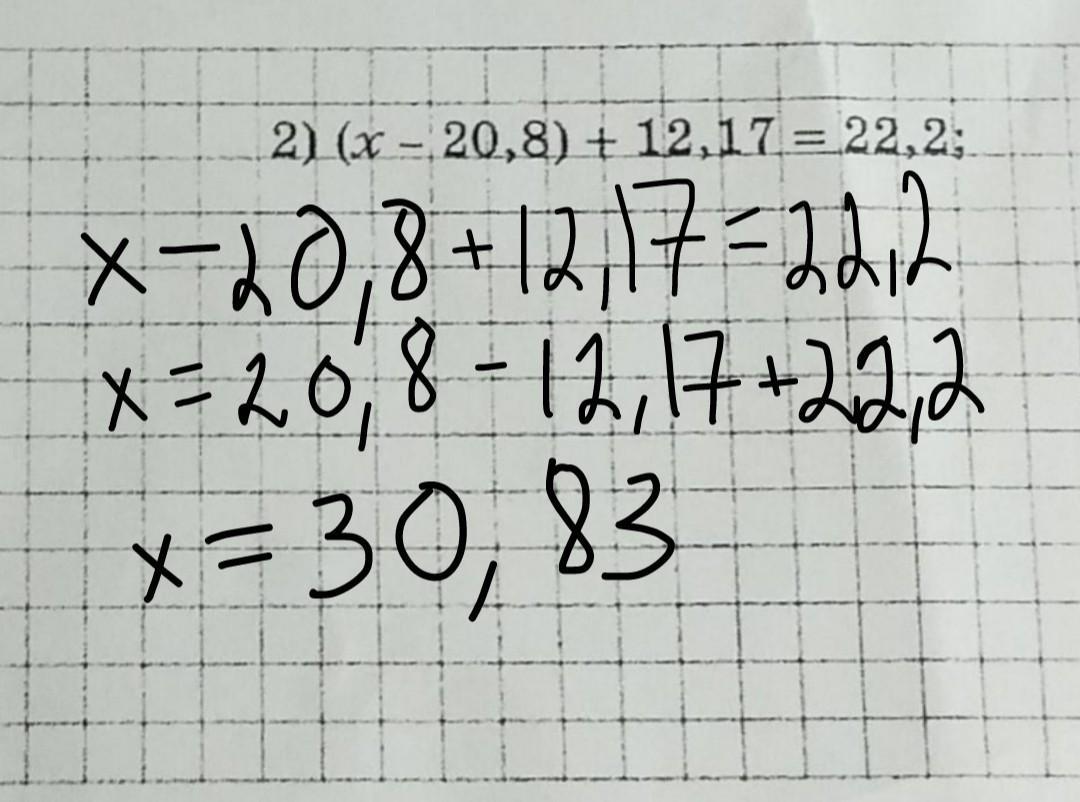 2) (x – 20,8) + 12,17 = 22,2;
x – 20,8 + 12,17 = 22,2
x = 20,8 - 12,17 + 22,2
x = 30,83